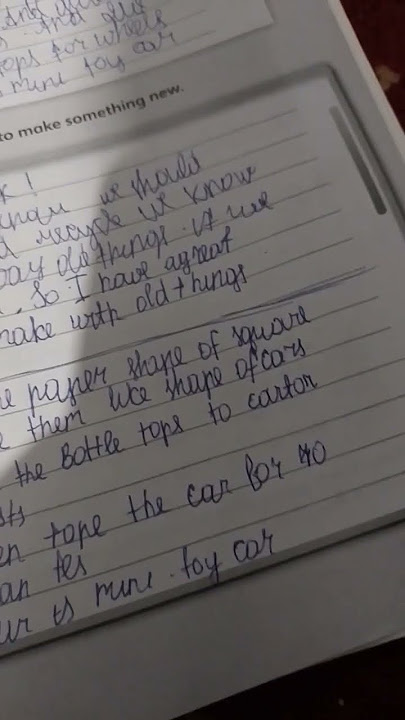 first
tops for whole
mini toy car
to make something new.
k !
we should
recycle we know
old things. if we
. So I have a great
make with old things
paper shape of square
them like shape of cars
the Bottle tops to cartor
tape the car for 40
mini toy car